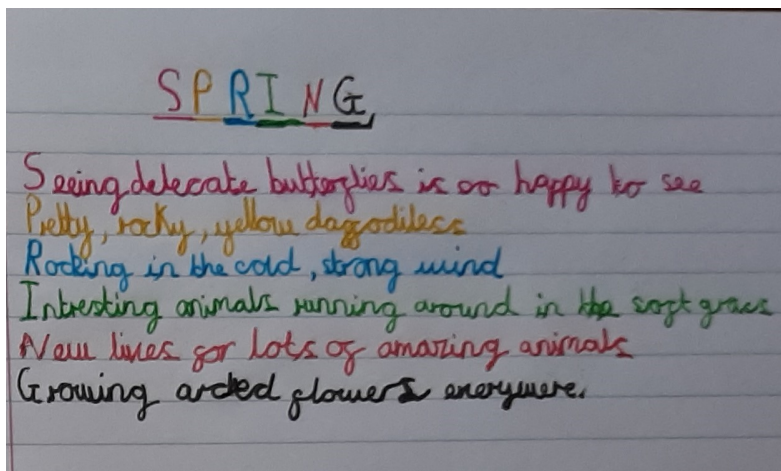 SPRING
Seeing delecate butterflies is so happy to see
Pretty, rocky, yellow daffodiless
Rocking in the cold, strong wind
Intresting animals running around in the soft grass
New lives for lots of amazing animals
Growing arded flowers everywere.